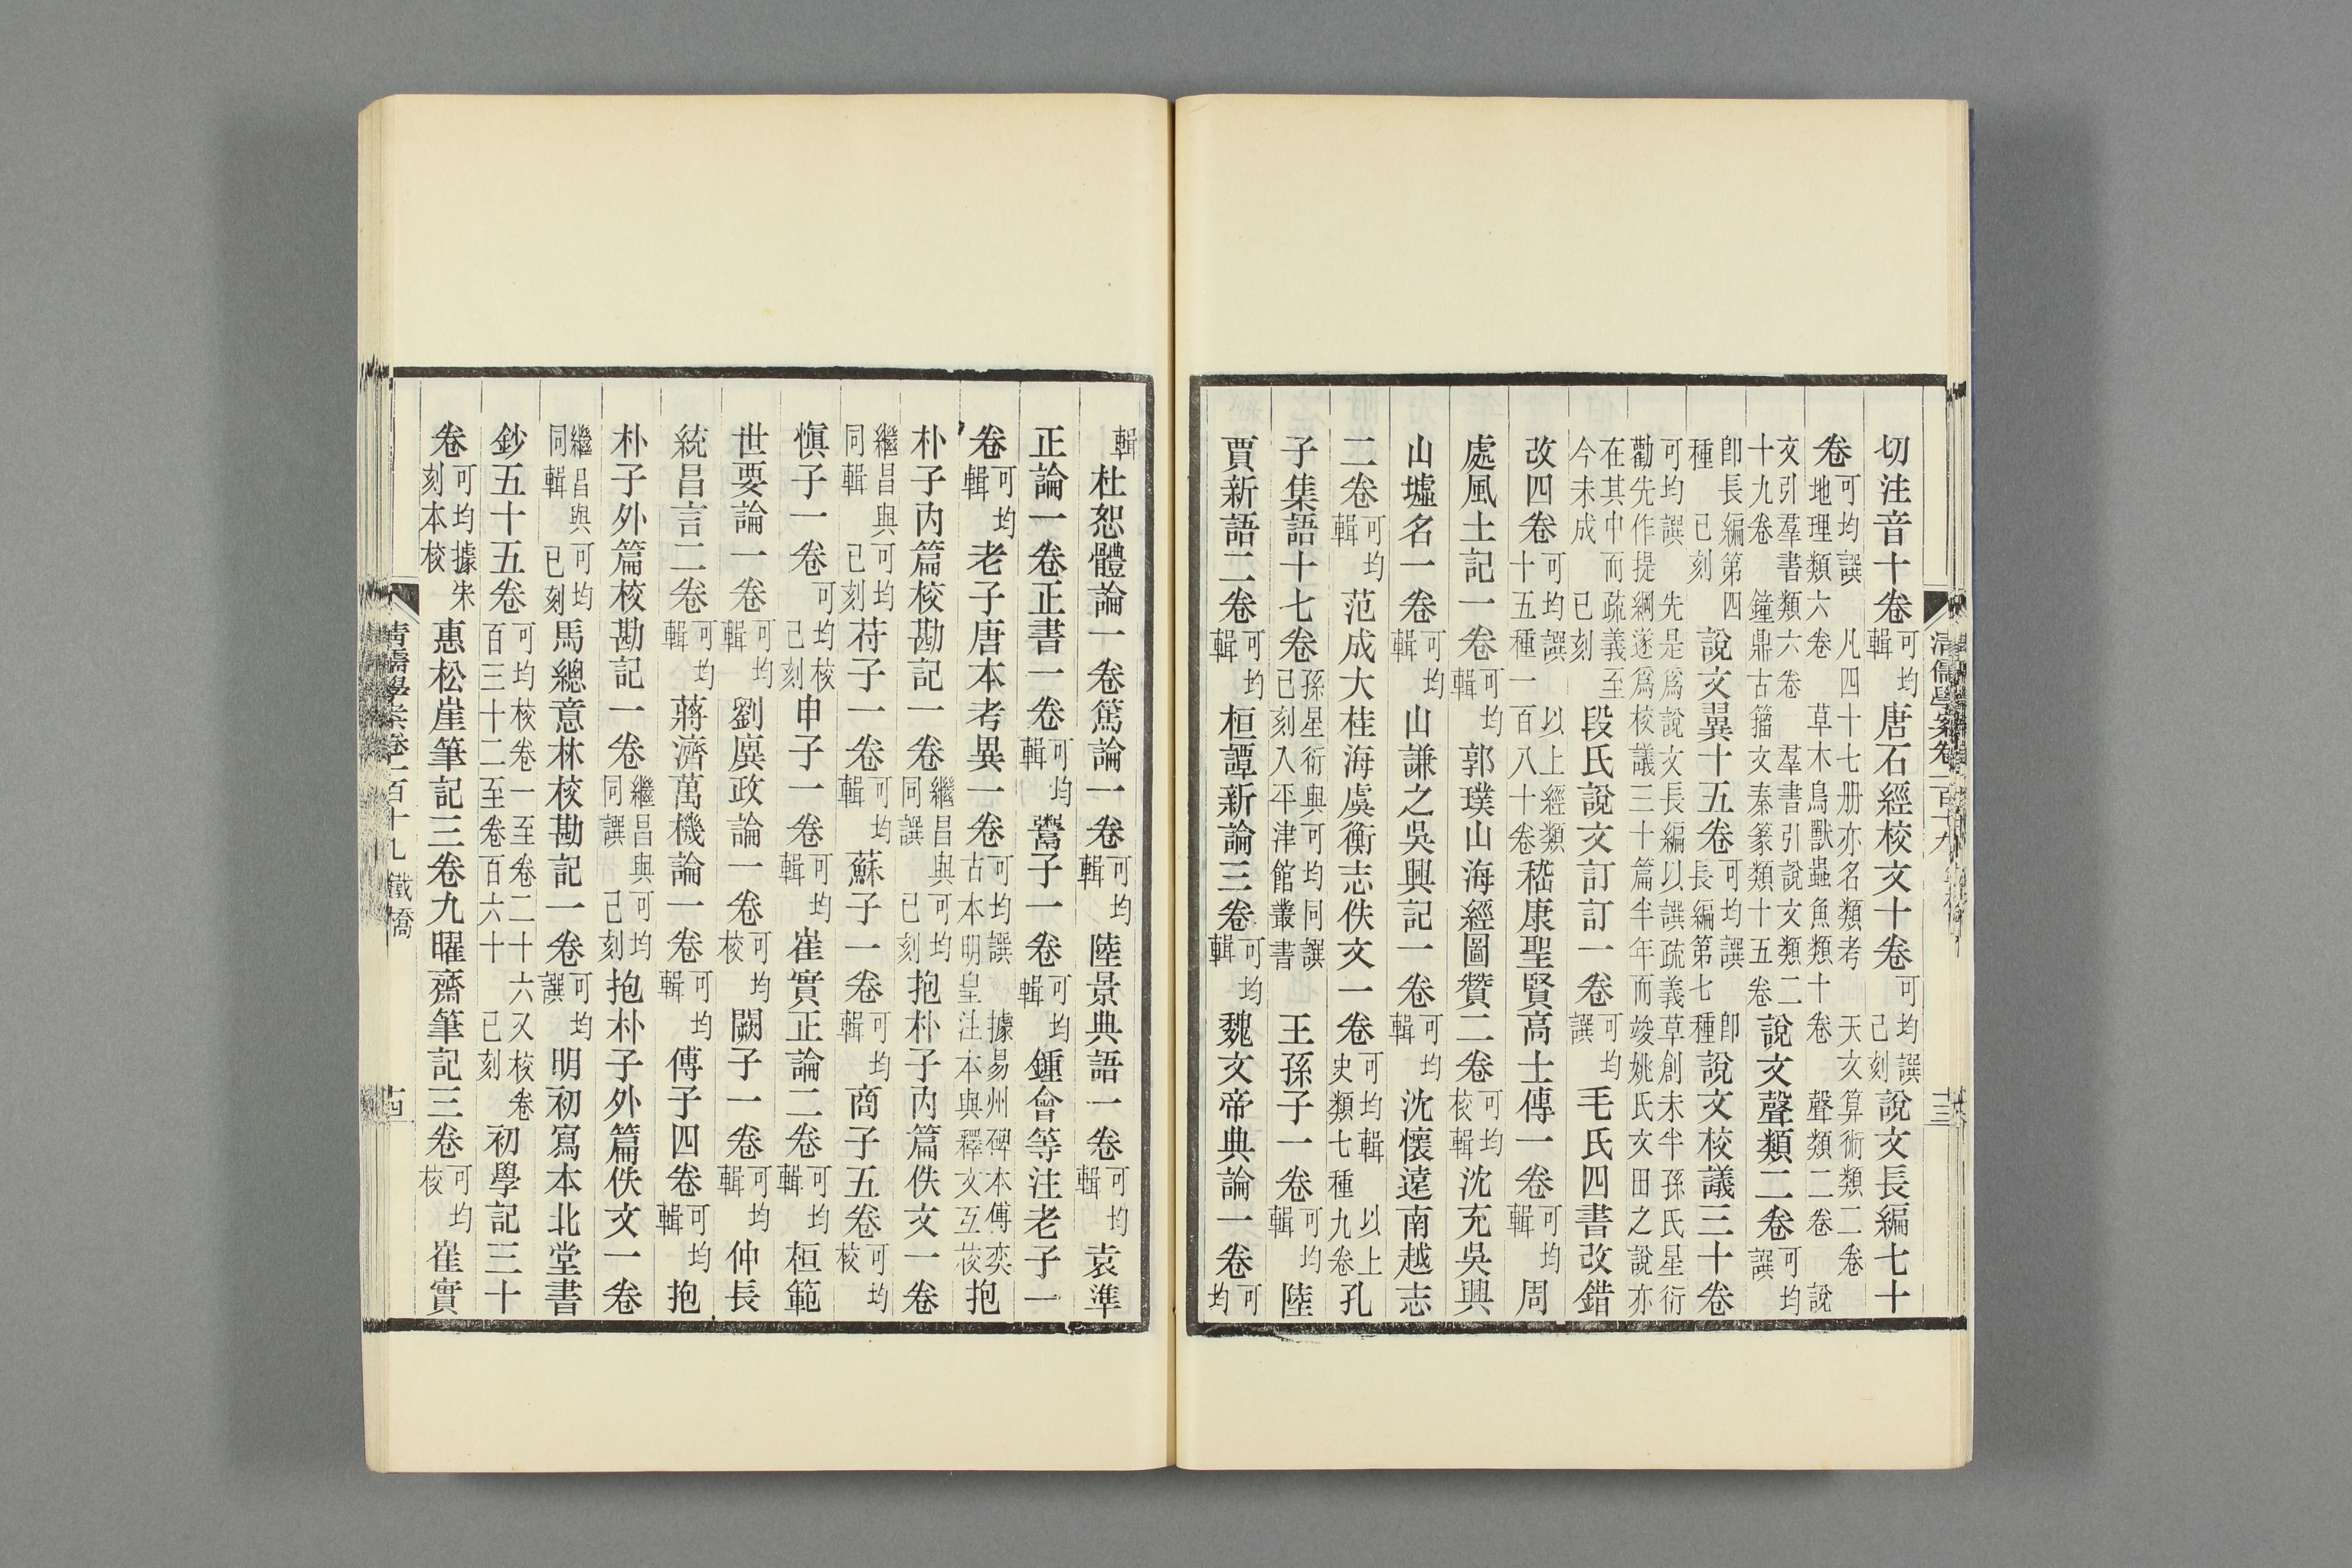 切注音十卷可均輯唐石經校文十卷可均譔已刻說文長編七十
卷可均譔凡四十七册亦名類考天文算術類二卷地理類六卷草木鳥獸蟲魚類十卷聲類二卷說
文引羣書類六卷羣書引說文類二十九卷鐘鼎古籀文秦篆類十五卷說文聲類二卷可均譔
卽長編第四種已刻說文翼十五卷可均譔卽長編第七種說文校議三十卷
可均譔先是爲說文長編以譔疏義草創未半孫氏星衍勸先作提綱遂爲校議三十篇半年而竣姚氏文田之說亦
在其中而疏義至今未成已刻段氏說文訂訂一卷可均譔毛氏四書改錯
改四卷可均譔以上經類十五種一百八十卷嵇康聖賢高士傳一卷可均輯周
處風土記一卷可均輯郭璞山海經圖贊二卷可均校輯沈充吳興
山墟名一卷可均輯山謙之吳興記一卷可均輯沈懷遠南越志
二卷可均輯范成大桂海虞衡志佚文一卷可均輯以上史類七種九卷孔
子集語十七卷孫星衍與可均同譔已刻入平津館叢書王孫子一卷可均輯陸
賈新語二卷可均輯桓譚新論三卷可均輯魏文帝典論一卷可均
輯杜恕體論一卷篤論一卷可均輯陸景典語一卷可均輯袁準
正論一卷正書一卷可均輯鬻子一卷可均輯鍾會等注老子一
卷可均輯老子唐本考異一卷可均譔據易州碑本傅奕古本明皇注本與釋文互校抱
朴子內篇校勘記一卷繼昌與可均同譔已刻抱朴子內篇佚文一卷
繼昌與可均同輯已刻苻子一卷可均輯蘇子一卷可均輯商子五卷可均校
愼子一卷可均校已刻申子一卷可均輯崔實正論二卷可均輯桓範
世要論一卷可均輯劉廙政論一卷可均校闕子一卷可均輯仲長
統昌言二卷可均輯蔣濟萬機論一卷可均輯傅子四卷可均輯抱
朴子外篇校勘記一卷繼昌與可均同譔已刻抱朴子外篇佚文一卷
繼昌與可均同輯已刻馬總意林校勘記一卷可均譔明初寫本北堂書
鈔五十五卷可均校卷一至卷二十六又校卷百三十二至卷百六十已刻初學記三十
卷可均據宋刻本校惠松崖筆記三卷九曜齋筆記三卷可均校崔實
清儒學案卷一百十九 鐵橋 十四